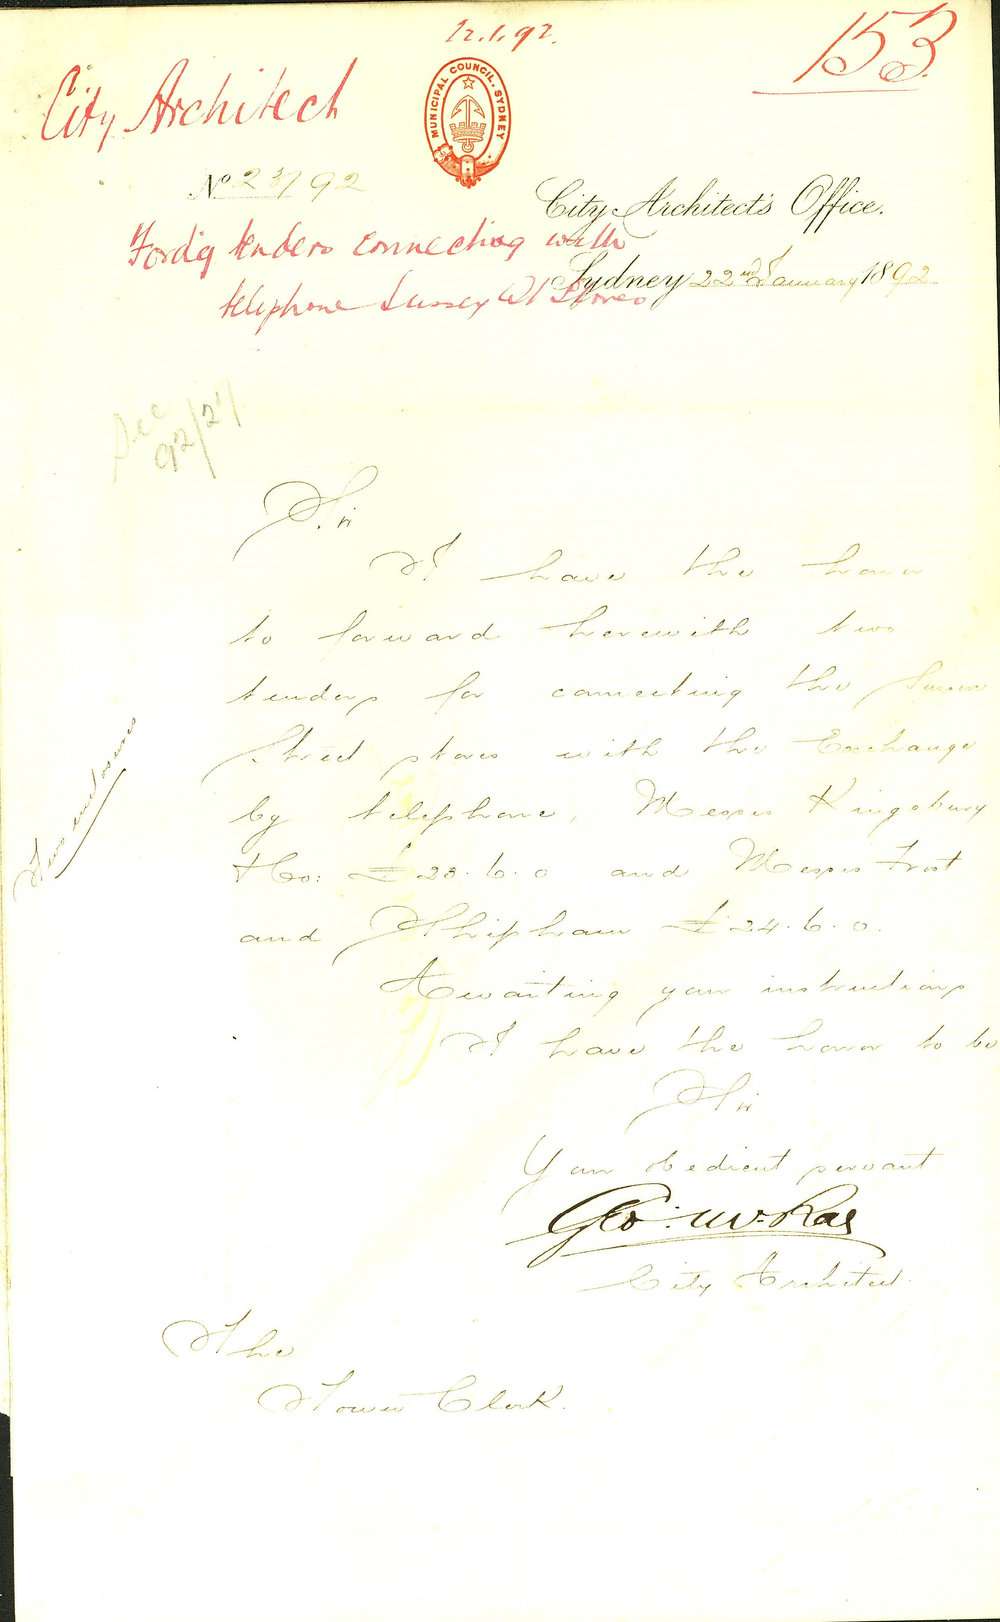 12.1.92.
153
City Architect
MUNICIPAL COUNCIL. SYDNEY
No 23/92
City Architect's Office.
Ford'g tenders connecting with
Sydney 22nd January 1892
telephone Sussex St Stores
See
92/27
Sir
I have the honor
to forward herewith two
tenders for connecting the Sussex
Street stores with the Exchange
by telephone, Messrs Kingsbury
& Co: £23.6.0 and Messrs Frost
and Shipham £24.6.0.
Two enclosures
Awaiting your instructions
I have the honor to be
Sir
Your obedient servant
Geo: McRae
City Architect.
The
Town Clerk.